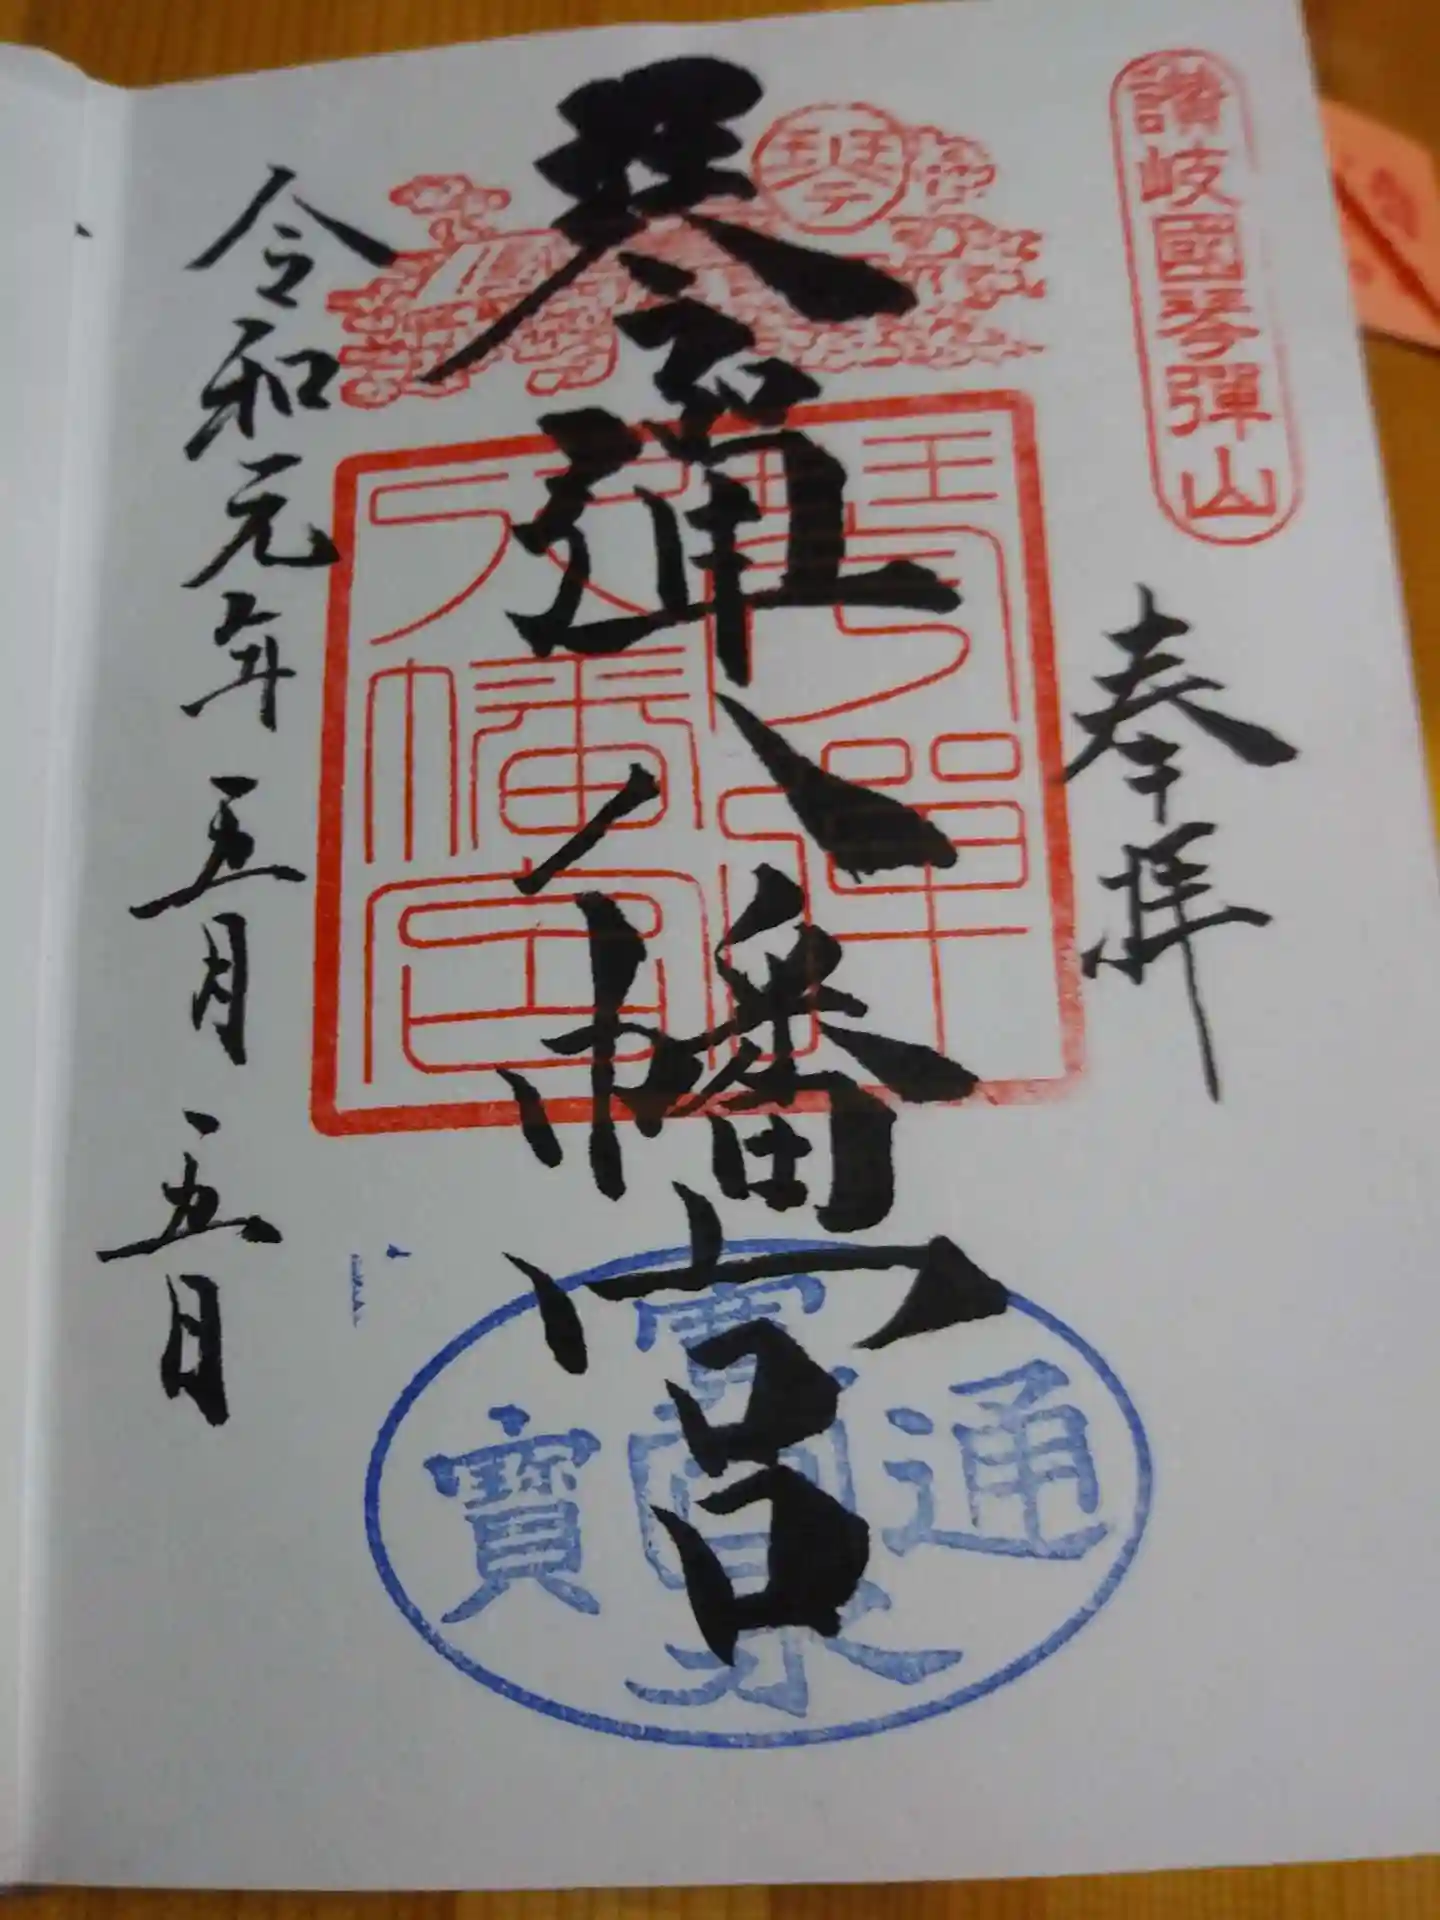 讃岐國琴彈山
奉拝
琴弾八幡宮
琴彈
八幡宮
令和元年五月五日
通
寛
寳